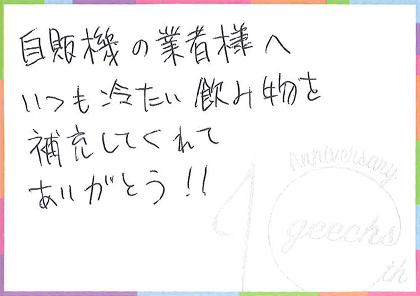 自販機の業者様へ
いつも冷たい飲み物を
補充してくれて
ありがとう!!
Anniversary
10
geechs
th